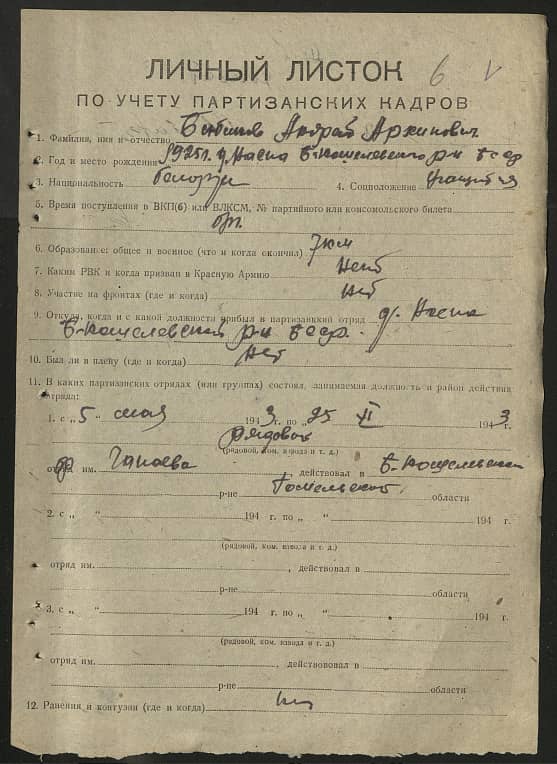 ЛИЧНЫЙ ЛИСТОК 6 V
ПО УЧЕТУ ПАРТИЗАНСКИХ КАДРОВ
1. Фамилия, имя и отчество Андрей Архипович
2. Год и место рождения 1925 г. д. Б-Кошелевского р-н БССР
3. Национальность белорус 4. Соцположение учащийся
5. Время поступления в ВКП(б) или ВЛКСМ, № партийного или комсомольского билета
б/п.
6. Образование: общее и военное (что и когда окончил) 7 кл
7. Каким РВК и когда призван в Красную Армию Нет
8. Участие на фронтах (где и когда) Нет
9. Откуда, когда и с какой должности прибыл в партизанский отряд д.
Б-Кошелевский р-н БССР.
10. Был ли в плену (где и когда) Нет
11. В каких партизанских отрядах (или группах) состоял, занимаемая должность и район действия
отряда:
1. с „ 5 " мая 1943 г. по „ 25 " XI 1943
рядовой
(рядовой, ком. взвода и т. д.)
отряд им. Чапаева, действовал в Б-Кошелевский
р-не Гомельской области
2. с „ " 194 г. по „ " 194 г.
(рядовой, ком. взвода и т. д.)
отряд им. , действовал в
р-не области
3. с „ " 194 г. по „ " 194 г.
(рядовой, ком. взвода и т. д.)
отряд им. , действовал в
р-не области
12. Ранения и контузии (где и когда) нет